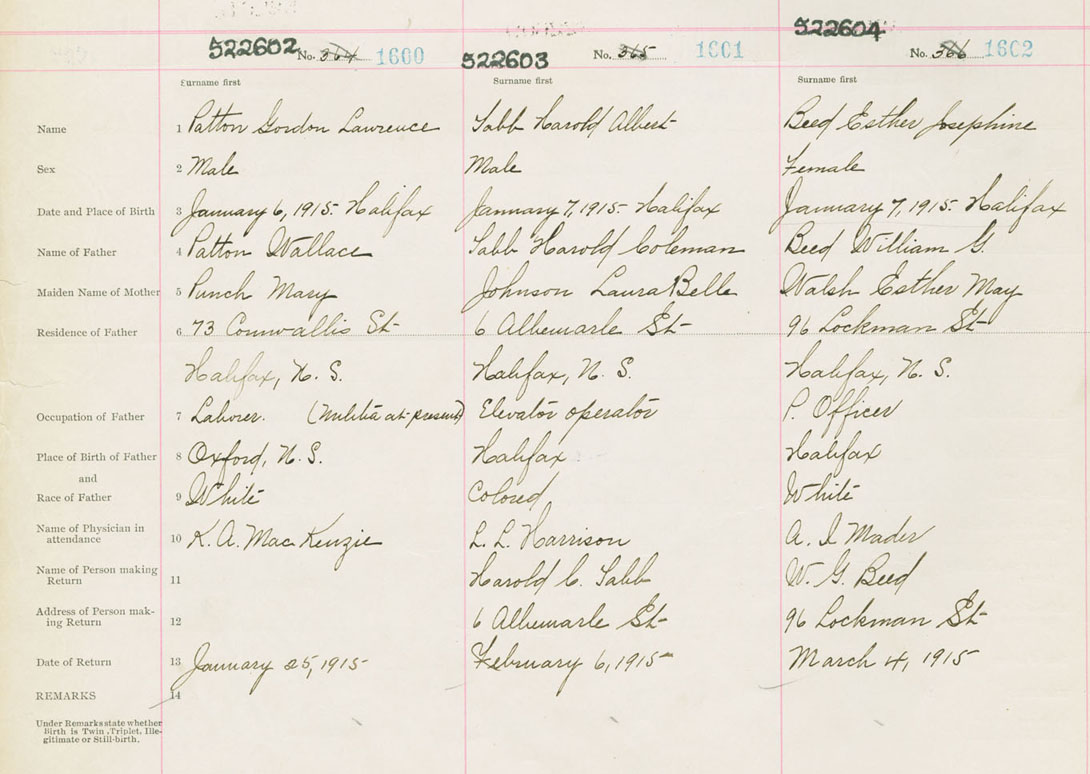 522602 No. 364 1600
522603 No. 365 1601
522604 No. 366 1602
Surname first Surname first Surname first
Name 1 Patton Gordon Lawrence Tabb Harold Albert Beed Esther Josephine
Sex 2 Male Male Female
Date and Place of Birth 3 January 6, 1915. Halifax January 7, 1915. Halifax January 7, 1915. Halifax
Name of Father 4 Patton Wallace Tabb Harold Coleman Beed William G.
Maiden Name of Mother 5 Punch Mary Johnson Laura Belle Walsh Esther May
Residence of Father 6 73 Cornwallis St 6 Albemarle St 96 Lockman St
Halifax, N. S. Halifax, N. S. Halifax, N. S.
Occupation of Father 7 Laborer. (Militia at present) Elevator operator P. Officer
Place of Birth of Father 8 Oxford, N. S. Halifax Halifax
and
Race of Father 9 White Colored White
Name of Physician in
attendance 10 K. A. MacKenzie L. L. Harrison A. I Mader
Name of Person making
Return 11 Harold C. Tabb W. G. Beed
Address of Person mak-
ing Return 12 6 Albemarle St 96 Lockman St
Date of Return 13 January 25, 1915 February 6, 1915 March 4, 1915
REMARKS 14
Under Remarks state whether
Birth is Twin, Triplet, Ille-
gitimate or Still-birth.